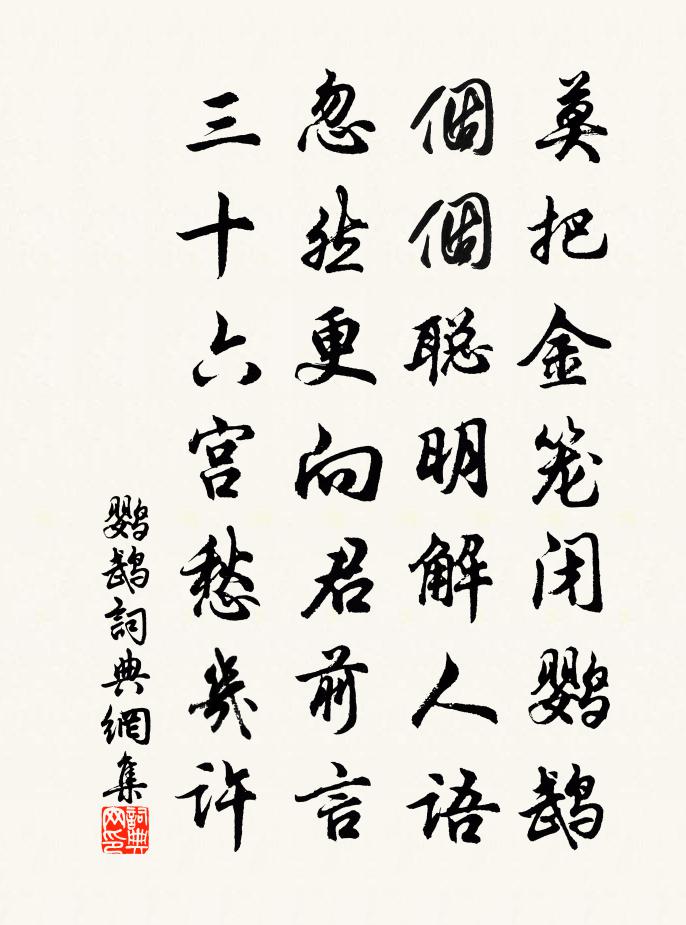 莫把金笼闭鹦鹉
個個聪明解人语
忽然更向君前言
三十六宫愁幾许
鹦鹉詞典網集
詞典
网印